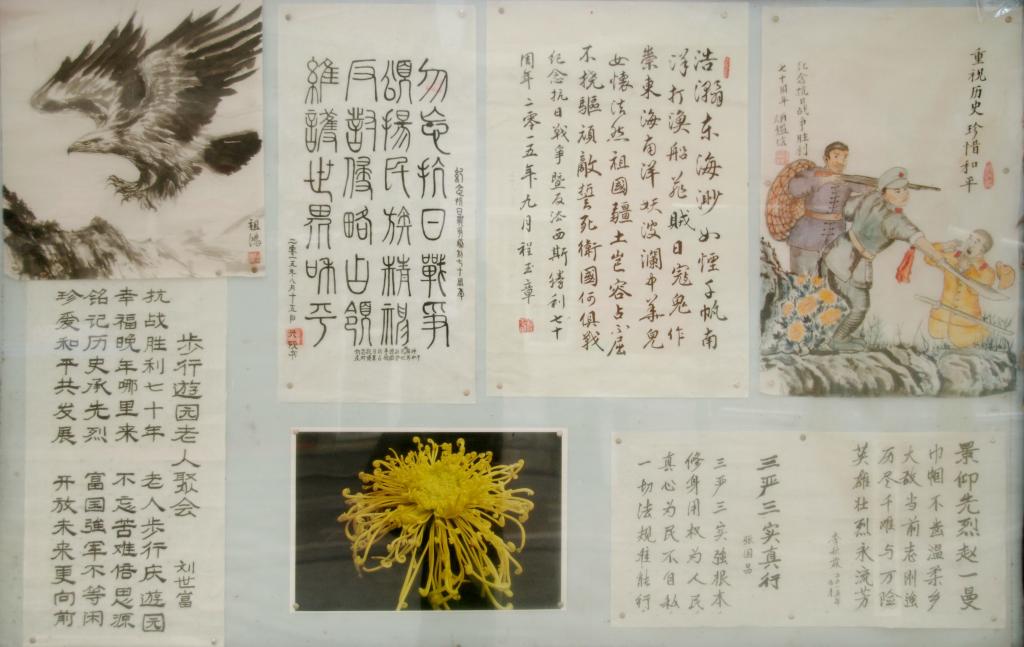 祖鸿
步行遊园老人聚会
刘世富
抗战胜利七十年
老人步行庆遊园
幸福晚年哪里来
不忘苦难悟思源
铭记历史承先烈
富国強军不等闲
珍爱和平共发展
开放未来更向前
勿忘抗日戰爭
頌揚民族精神
反對侵略占領
維護世界和平
二零一五年八月十五日
浩瀚东海渺如煙千帆南
洋打漁船
賊日寇鬼作
祟東海南洋妖波瀾中華兒
女懷法然祖國疆土岂容占不屈
不挠驅頑敵誓死衛國何俱戰
纪念抗日戰争暨反法西斯勝利七十
周年二零一五年九月程玉章
重视历史珍惜和平
纪念抗日战争胜利
七十周年
景仰先烈赵一曼
巾帼不亚温柔乡
大敌当前志刚強
历尽千难与万险
英雄壮烈永流芳
三严三实真行
张国品
三严三实強根本
修身用权为人民
真心为民不自私
一切法规准能行